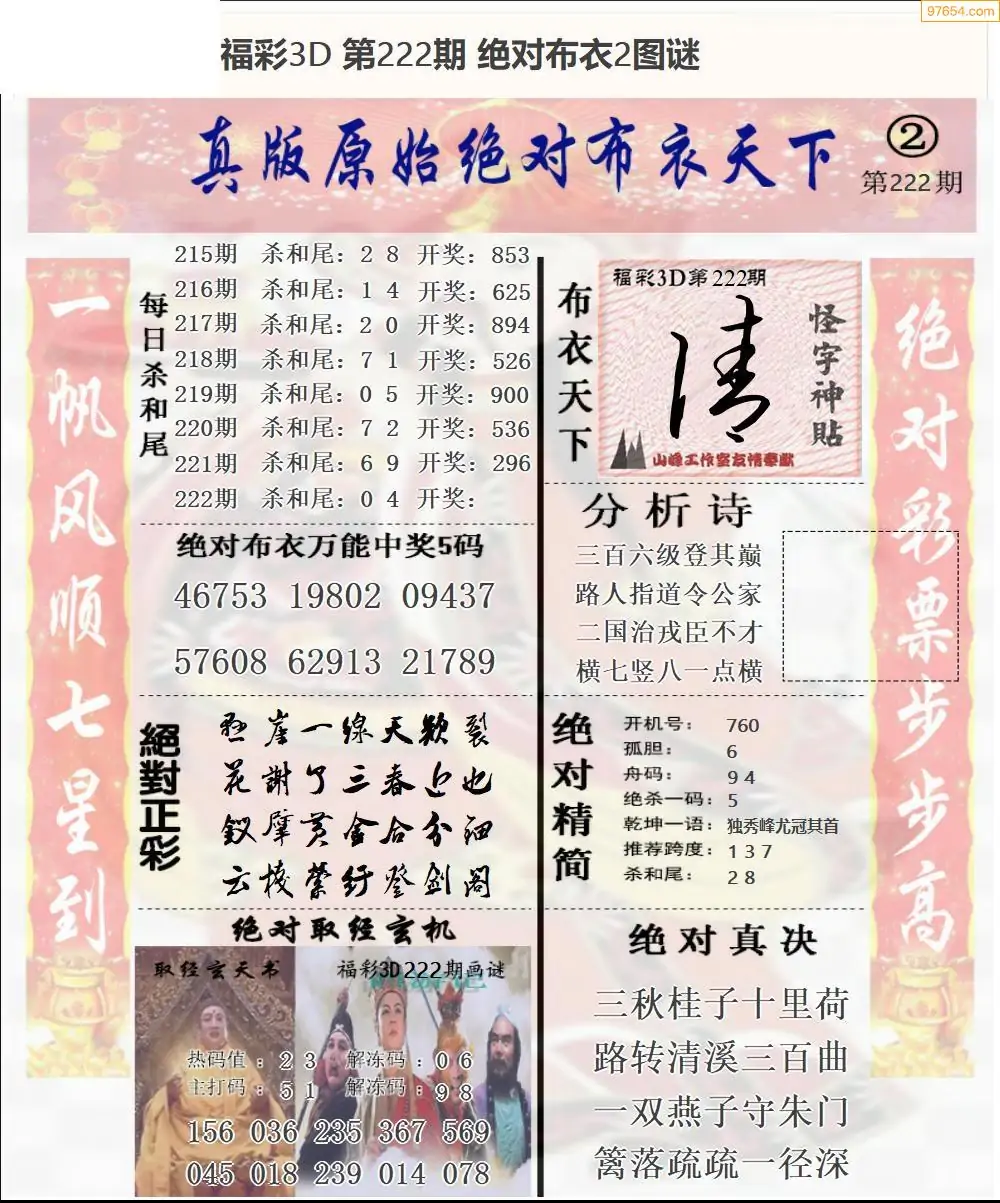 97654.com
福彩3D 第222期 绝对布衣2图谜
真版原始绝对布衣天下
②
第222期
一帆风顺七星到
每日杀和尾
215期 杀和尾：2 8 开奖：853
216期 杀和尾：1 4 开奖：625
217期 杀和尾：2 0 开奖：894
218期 杀和尾：7 1 开奖：526
219期 杀和尾：0 5 开奖：900
220期 杀和尾：7 2 开奖：536
221期 杀和尾：6 9 开奖：296
222期 杀和尾：0 4 开奖：
绝对布衣万能中奖5码
46753 19802 09437
57608 62913 21789
絕對正彩
崖一線天欵裂
花謝了三春近也
釵擘黄金合分钿
云栈萦纡登剑阁
绝对取经玄机
取经玄天书
福彩3D222期画谜
热码值：2 3 解冻码：0 6
主打码：5 1 解冻码：9 8
156 036 235 367 569
045 018 239 014 078
布衣天下
福彩3D第222期
清
怪字神貼
山峰工作室友情奉献
分析诗
三百六级登其巅
路人指道令公家
二国治戎臣不才
横七竖八一点横
绝对精简
开机号： 760
孤胆： 6
舟码： 9 4
绝杀一码： 5
乾坤一语： 独秀峰尤冠其首
推荐跨度： 1 3 7
杀和尾： 2 8
绝对真决
三秋桂子十里荷
路转清溪三百曲
一双燕子守朱门
篱落疏疏一径深
绝对彩票步步高